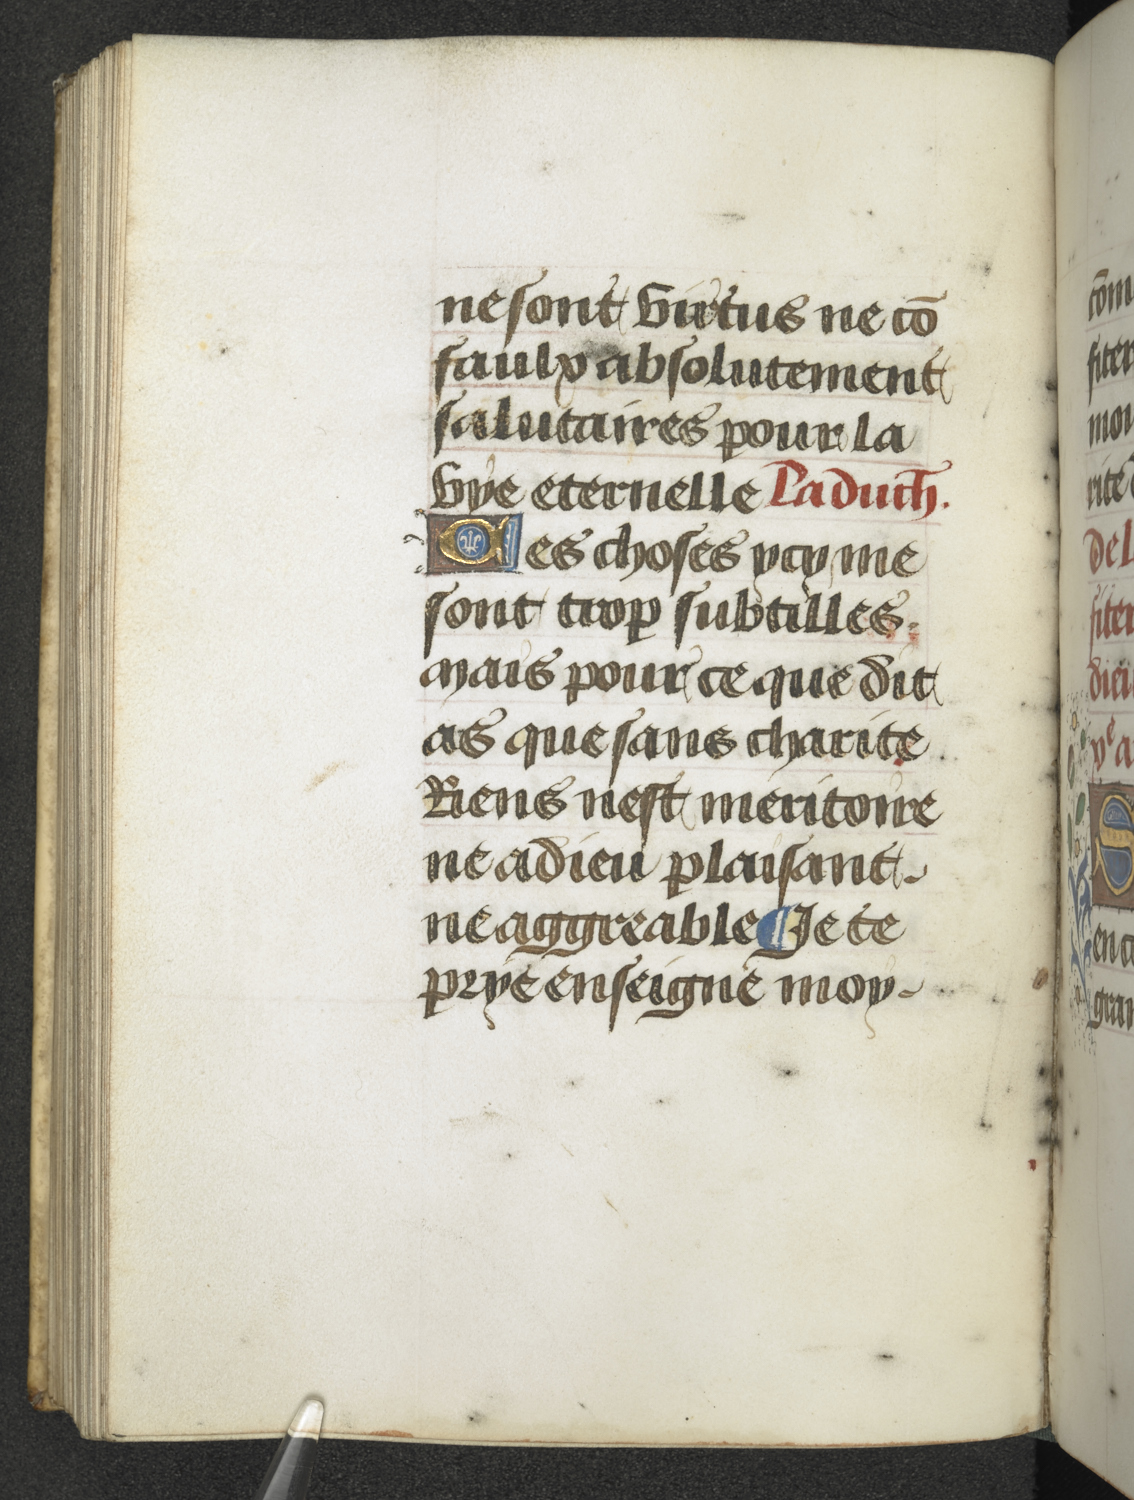 ne sont virtus ne cō
saulx absolutement
salutaires pour la
vye eternelle La duch.
Ces choses ycy me
sont trop subtilles.
Mais pour ce que dit
as que sans charite
Riens nest meritoire
ne a dieu plaisant.
ne aggreable Je te
prye enseigne moy
cōm
fiter
mou
rite
De l
fiter
diei
yᵉ a
S
en ce
gran